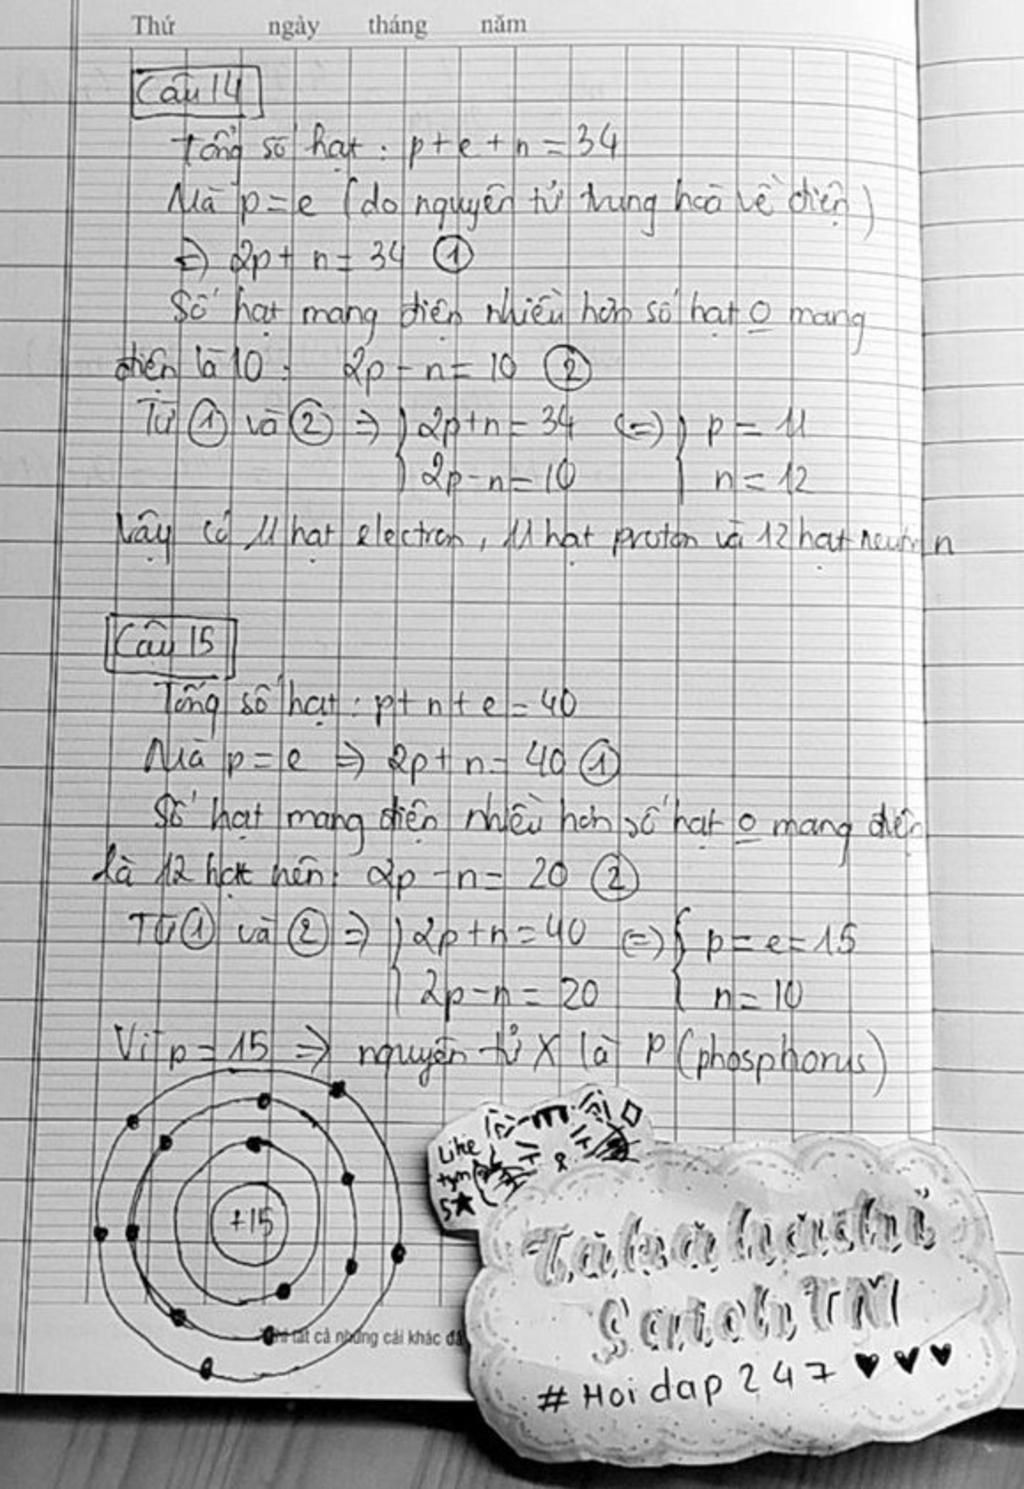 Thứ ngày tháng năm
Câu 14
Tổng số hạt : p + e + n = 34
Mà p = e (do nguyên tử trung hoà về điện)
=> 2p + n = 34 ①
Số hạt mang điện nhiều hơn số hạt o mang
điện là 10 : 2p - n = 10 ②
Từ ① và ② => { 2p + n = 34 (=) { p = 11
2p - n = 10 n = 12
Vậy có 11 hạt electron, 11 hạt proton và 12 hạt neutron
Câu 15
Tổng số hạt : p + n + e = 40
Mà p = e => 2p + n = 40 ①
Số hạt mang điện nhiều hơn số hạt o mang điện
là 12 hạt nên : 2p - n = 20 ②
Từ ① và ② => { 2p + n = 40 (=) { p = e = 15
2p - n = 20 n = 10
Vì p = 15 => nguyên tử X là P (phosphorus)
+15
Like
tym
5★
tất cả những cái khác
#Hoidap247 ♥♥♥